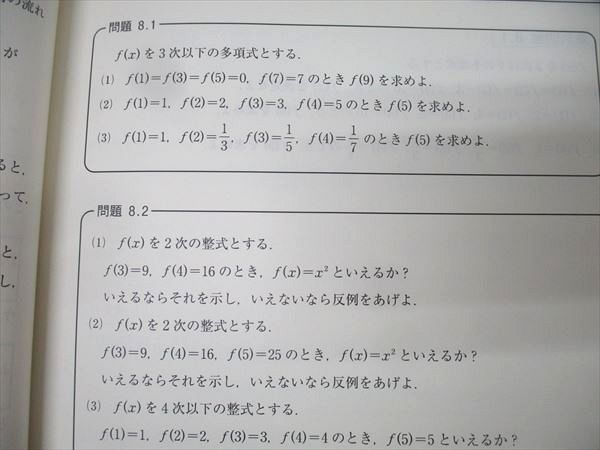 の流れ
が
ると,
って,
と,
し,
問題 8.1
f(x) を 3 次以下の多項式とする.
(1) f(1)=f(3)=f(5)=0, f(7)=7 のとき f(9) を求めよ.
(2) f(1)=1, f(2)=2, f(3)=3, f(4)=5 のとき f(5) を求めよ.
(3) f(1)=1, f(2)=1/3, f(3)=1/5, f(4)=1/7 のとき f(5) を求めよ.
問題 8.2
(1) f(x) を 2 次の整式とする.
f(3)=9, f(4)=16 のとき, f(x)=x² といえるか?
いえるならそれを示し, いえないなら反例をあげよ.
(2) f(x) を 2 次の整式とする.
f(3)=9, f(4)=16, f(5)=25 のとき, f(x)=x² といえるか?
いえるならそれを示し, いえないなら反例をあげよ.
(3) f(x) を 4 次以下の整式とする.
f(1)=1, f(2)=2, f(3)=3, f(4)=4 のとき, f(5)=5 といえるか?